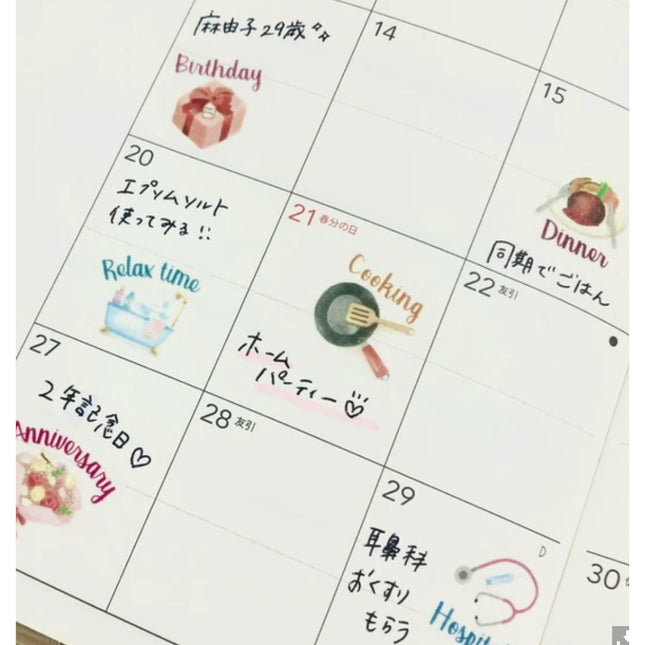 麻由子29歳
Birthday
14
15
Dinner
同期でごはん
20
エプソムソルト
使ってみる!!
Relax time
21 春分の日
Cooking
ホーム
パーティー♡
22 友引
27
2年記念日♡
Anniversary
28 友引
29
耳鼻科
おくすり
もらう
30